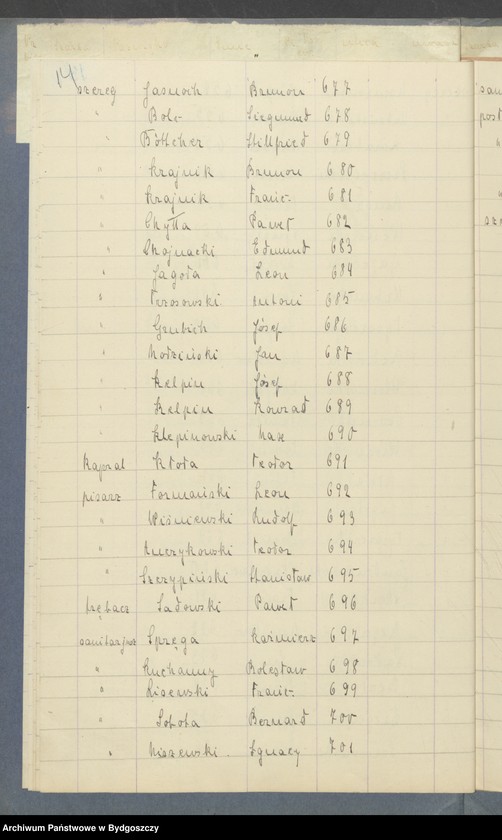 14
szereg Jasnoch Brunon 677
" Bolc Siegmund 678
" Böttcher Stillfried 679
" Krajnik Brunon 680
" Krajnik Franc. 681
" Chyłła Paweł 682
" Chojnacki Edmund 683
" Jagoła Leon 684
" Trzosowski Antoni 685
" Grubich Józef 686
" Modziński Jan 687
" Kelpin Józef 688
" Kelpin Konrad 689
" Klepinowski Maks 690
Kapral Kłoła Teodor 691
pisarz Formański Leon 692
" Wiśniewski Rudolf 693
" Kuczykowski Teodor 694
" Szczypiński Stanisław 695
trębacz Sadowski Paweł 696
sanitarjusz Sprega Kaźimierz 697
" Kuchanny Bolesław 698
" Lisewski Franc. 699
" Sobota Bernard 700
" Kiszewski Ignacy 701
san
post
"
"
sze
Archiwum Państwowe w Bydgoszczy